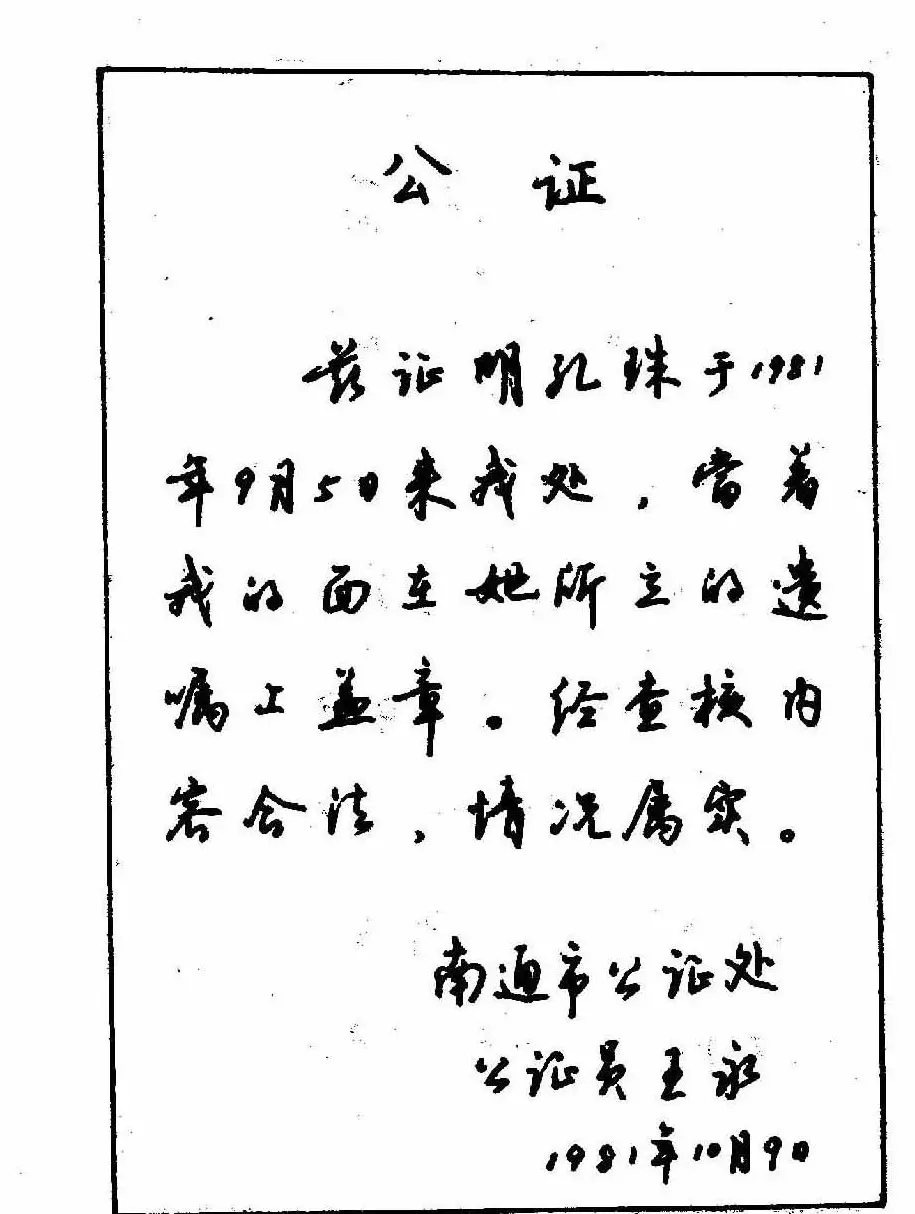 公证
兹证明孔珠于1981
年9月5日来我处，当着
我的面在她所立的遗
嘱上盖章。经查核内
容合法，情况属实。
南通市公证处
公证员王永
1981年10月9日